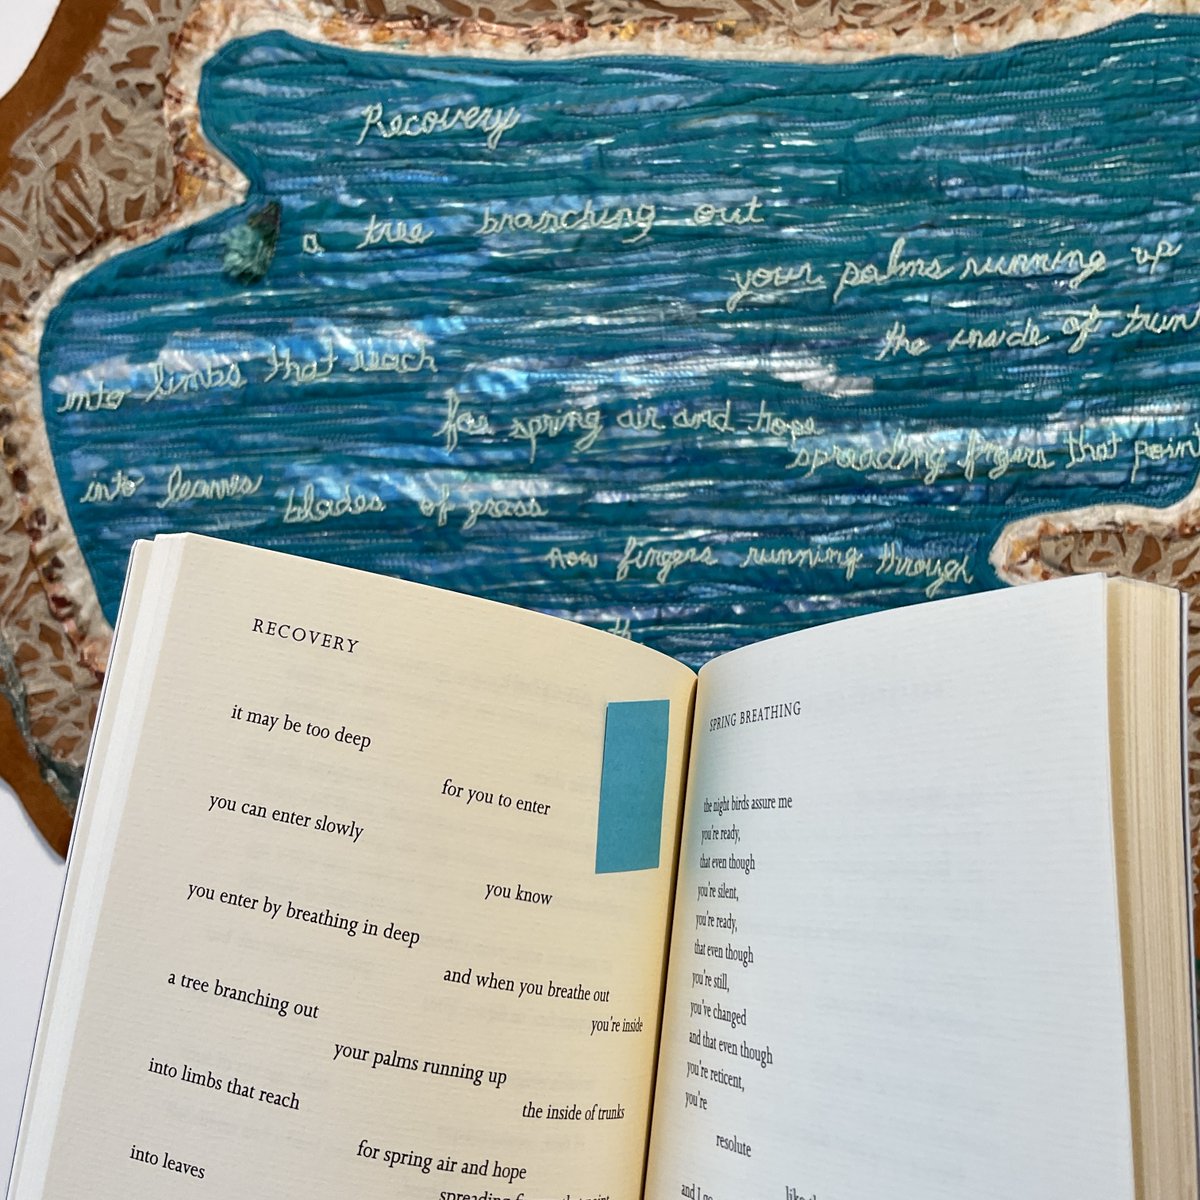 Recovery
a tree branching out
your palms running up
the inside of
into limbs that reach
for spring air and hope
spreading fingers that point
into leaves
blades of grass
now fingers running through
RECOVERY
it may be too deep
for you to enter
you can enter slowly
you know
you enter by breathing in deep
and when you breathe out
a tree branching out
you're inside
your palms running up
into limbs that reach
the inside of trunks
for spring air and hope
into leaves
SPRING BREATHING
the night birds assure me
you're ready,
that even though
you're silent,
you're ready,
that even though
you're still,
you've changed
and that even though
you're reticent,
you're
resolute
and I go